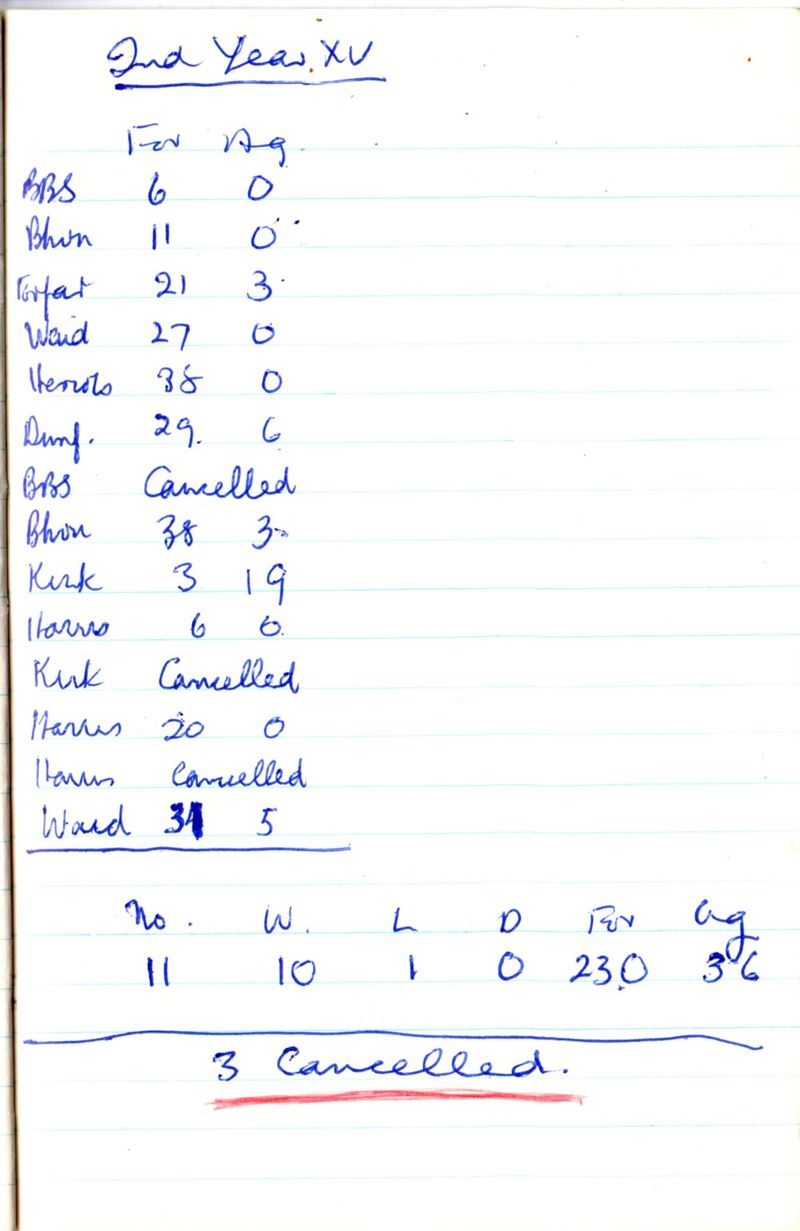 2nd Year XV
For Ag
BBS 6 0
Bhvn 11 0
Forfar 21 3
Waid 27 0
Heriots 38 0
Dunf. 29 6
BBS Cancelled
Bhvn 38 3
Kirk 3 19
Harris 6 0
Kirk Cancelled
Harris 20 0
Harris Cancelled
Waid 31 5
No. W. L D For Ag
11 10 1 0 230 36
3 Cancelled.